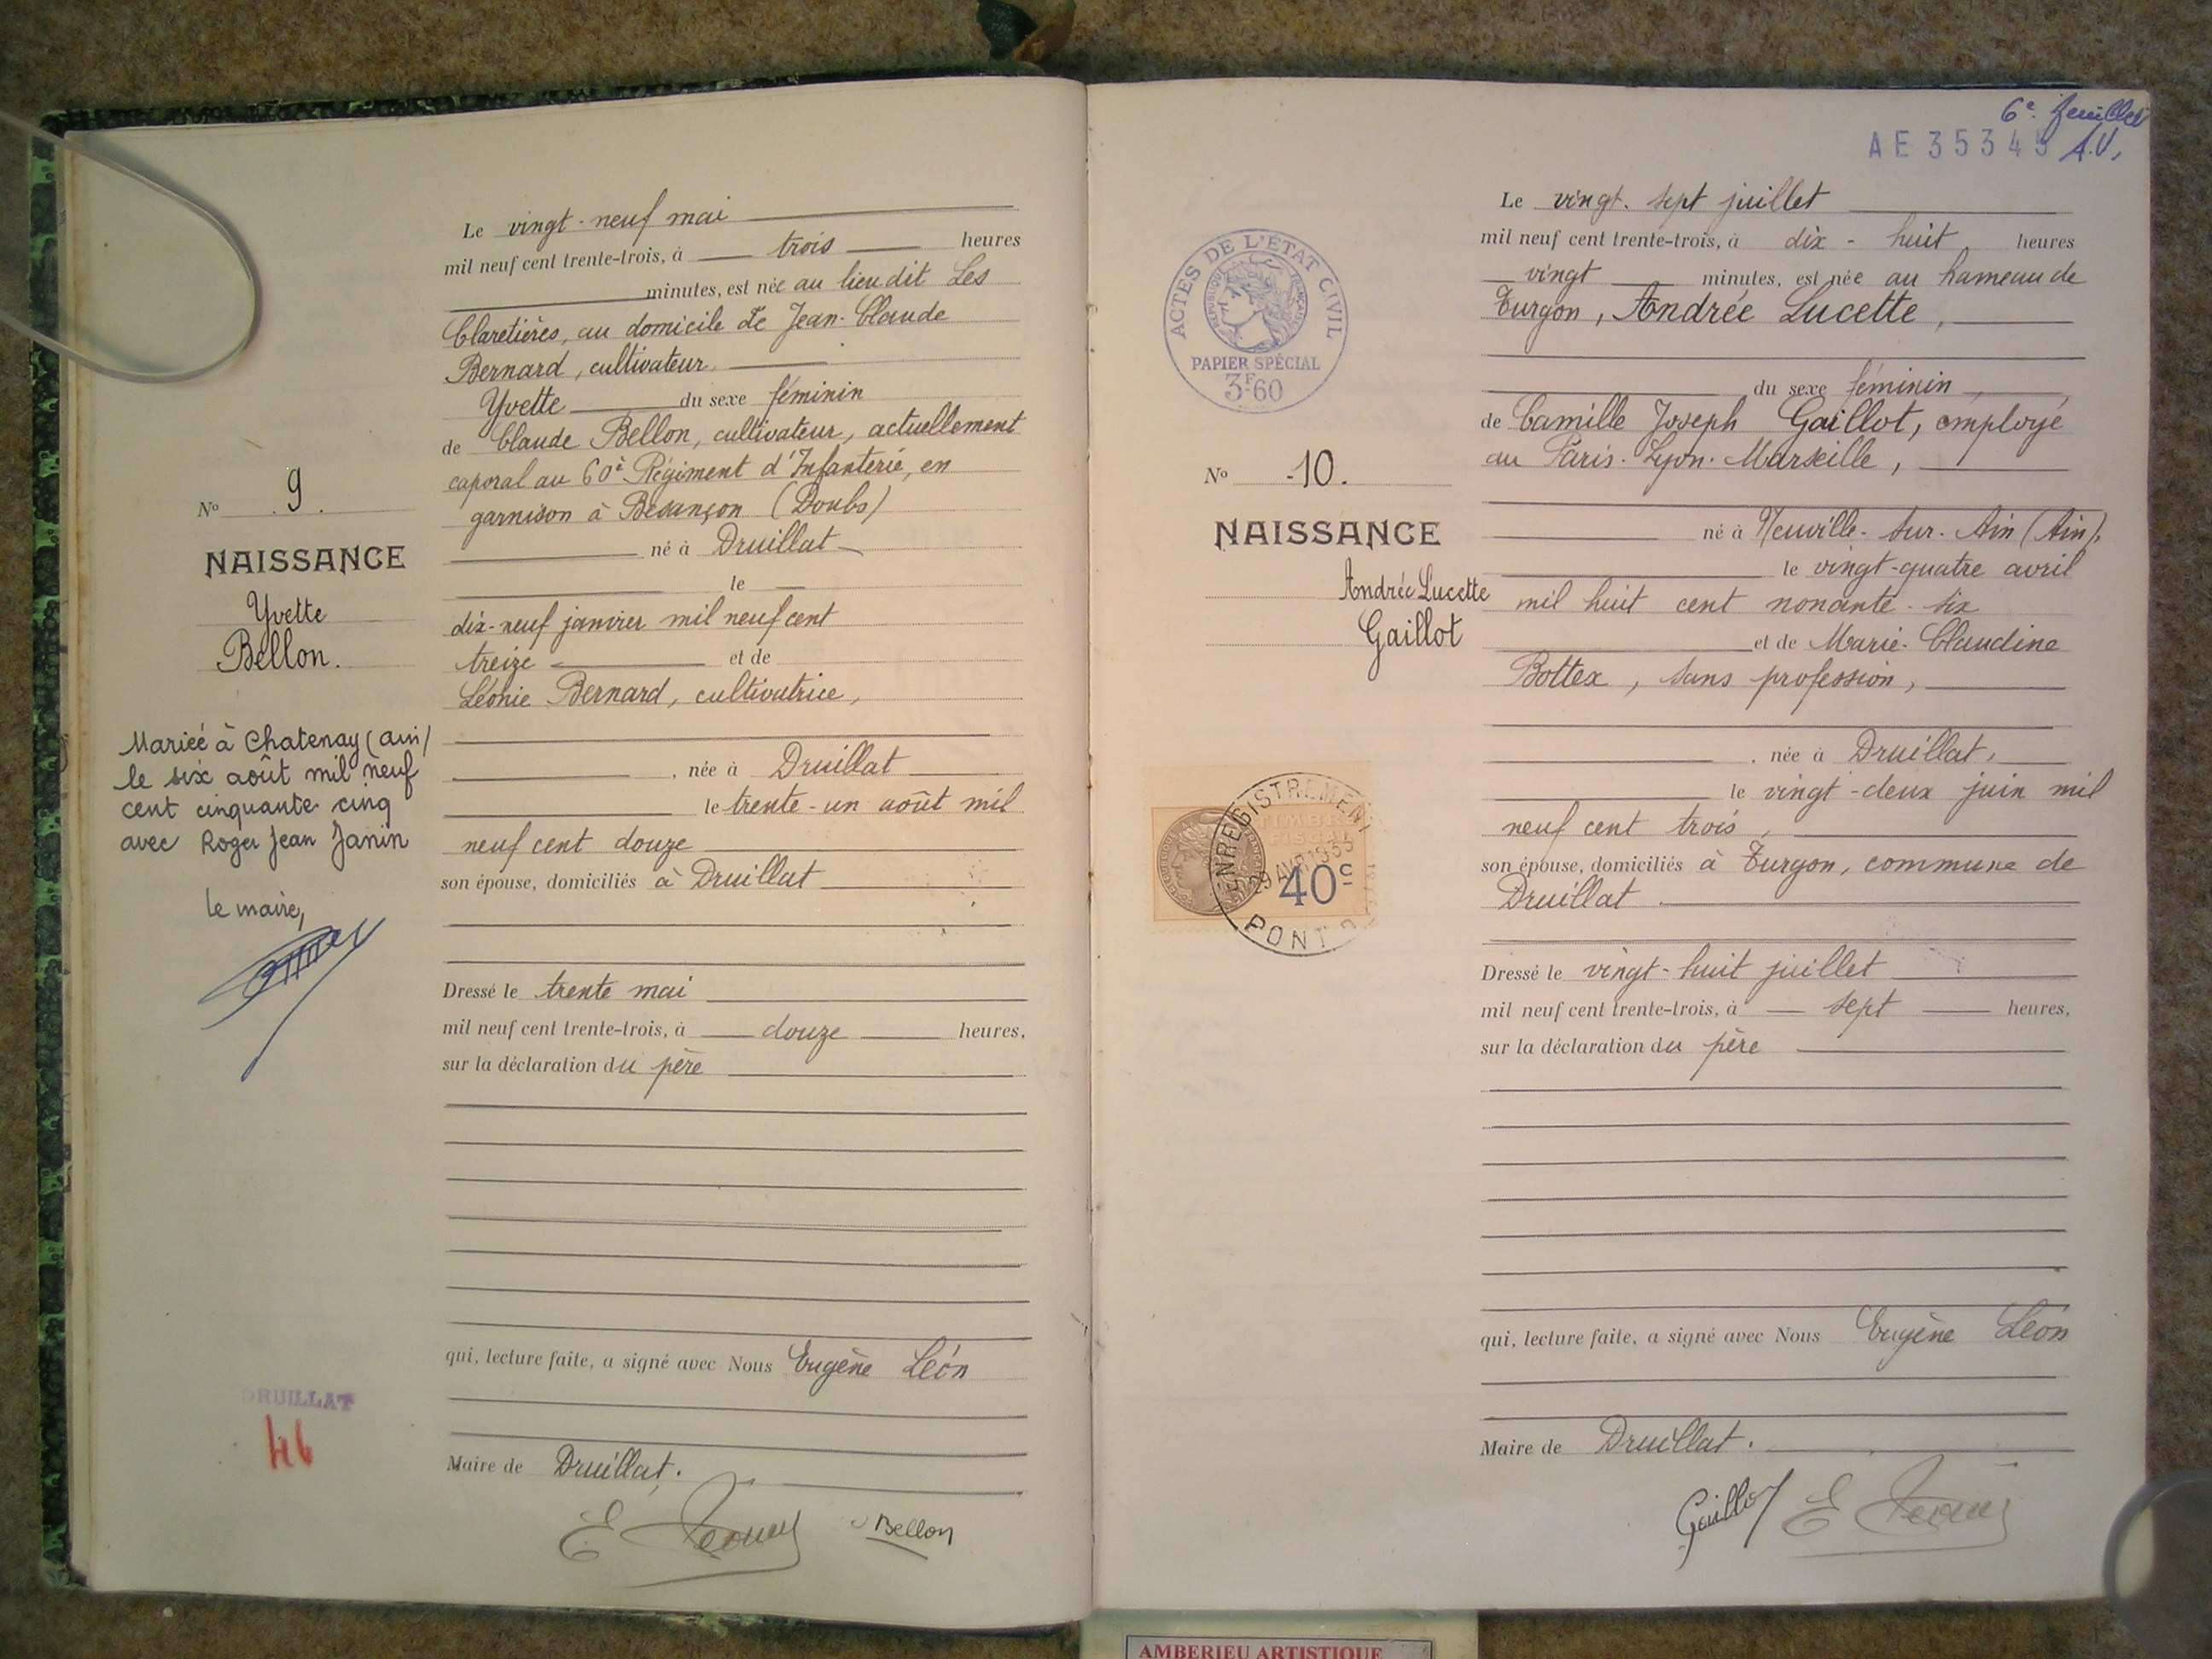 Le vingt-neuf mai
mil neuf cent trente-trois, à trois heures
minutes, est née au lieu dit Les
Claretières, au domicile de Jean-Claude
Bernard, cultivateur
Yvette du sexe féminin
de Claude Bellon, cultivateur, actuellement
caporal au 60è Régiment d'Infanterie, en
garnison à Besançon (Doubs)
né à Druillat
le
dix-neuf janvier mil neuf cent
treize et de
Léonie Bernard, cultivatrice,
, née à Druillat
le trente-un août mil
neuf cent douze
son épouse, domiciliés à Druillat
Dressé le trente mai
mil neuf cent trente-trois, à douze heures,
sur la déclaration du père
qui, lecture faite, a signé avec Nous Eugène Léon
Maire de Druillat.
Bellon
No 9.
NAISSANCE
Yvette
Bellon.
Mariée à Chatenay (ain)
le six août mil neuf
cent cinquante cinq
avec Roger Jean Janin
le maire,
DRUILLAT
46
6e feuillet
AE 35345 A.V.
Le vingt-sept juillet
mil neuf cent trente-trois, à dix-huit heures
vingt minutes, est née au hameau de
Turgon, Andrée Lucette,
du sexe féminin
de Camille Joseph Gaillot, employé
au Paris-Lyon-Marseille,
né à Neuville-sur-Ain (Ain),
le vingt-quatre avril
mil huit cent nonante-six
et de Marie-Claudine
Bottex, sans profession,
, née à Druillat,
le vingt-deux juin mil
neuf cent trois,
son épouse, domiciliés à Turgon, commune de
Druillat.
Dressé le vingt-huit juillet
mil neuf cent trente-trois, à sept heures,
sur la déclaration du père
qui, lecture faite, a signé avec Nous Eugène Léon
Maire de Druillat.
Gaillot
ACTES DE L'ETAT CIVIL
REPUBLIQUE FRANÇAISE
PAPIER SPÉCIAL
3F60
No 10.
NAISSANCE
Andrée Lucette
Gaillot
ENREGISTREMENT
TIMBRE
FISCAL
40c
PONT
AMBERIEU ARTISTIQUE